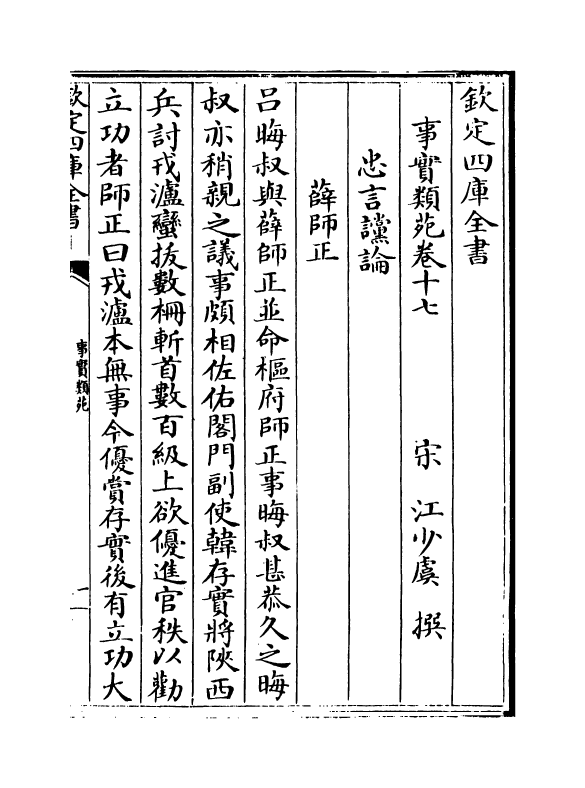 欽定四庫全書
事實類苑卷十七　宋　江少虞　撰
忠言讜論
薛師正
呂晦叔與薛師正並命樞府師正事晦叔甚恭久之晦
叔亦稍親之議事頗相佐佑閣門副使韓存實將陝西
兵討戎瀘蠻拔數柵斬首數百級上欲優進官秩以勸
立功者師正曰戎瀘本無事今優賞存實後有立功大
欽定四庫全書
事實類苑